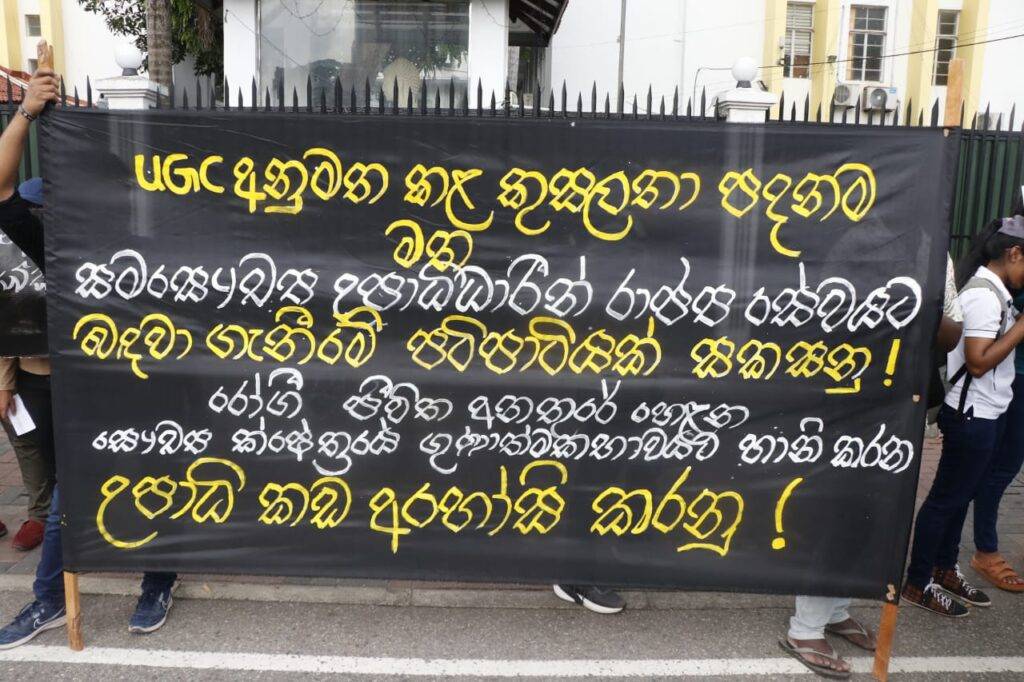 UGC අනුමත කළ කුසලතා පදනම
මත
සමසෞඛ්‍ය උපාධිධාරීන් රාජ්‍ය සේවයට
බඳවා ගැනීමේ පටිපාටියක් සකසනු !
රෝගී ජීවිත අනතුරේ හෙළන
සෞඛ්‍ය ක්ෂේත්‍රයේ ගුණාත්මකභාවයට හානි කරන
උපාධි කඩ අරහෝසි කරනු !